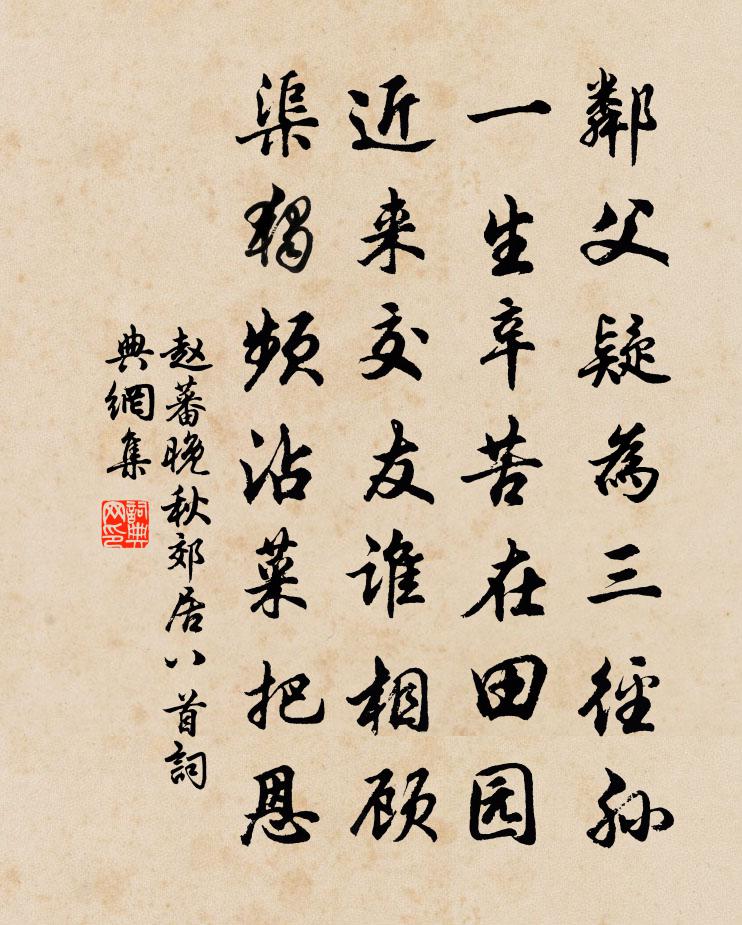 鄰父疑為三徑孙
一生辛苦在田园
近来交友谁相顾
渠獨频沾菜把恩
赵蕃晚秋郊居八首詞
典網集
詞典网印